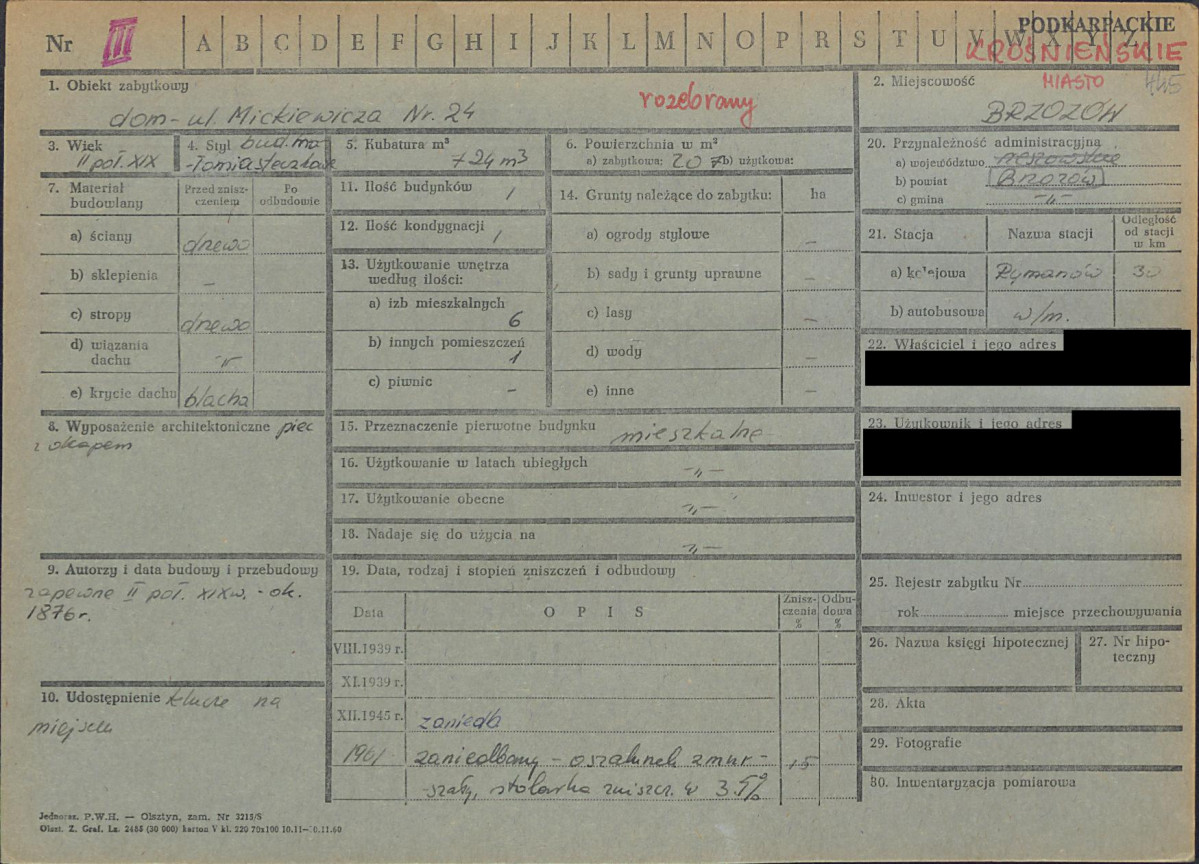 Nr III A B C D E F G H I J K L M N O P R S T U V W X Y Z
PODKARPACKIE
KROŚNIEŃSKIE
1. Obiekt zabytkowy
dom - ul. Mickiewicza Nr. 24
rozebrany
2. Miejscowość
MIASTO 445
BRZOZÓW
3. Wiek
II poł. XIX
4. Styl bud. ma-
-łomiasteczkowe
5. Kubatura m³
724 m³
6. Powierzchnia w m²
a) zabytkowa: 207 b) użytkowa:
7. Materiał budowlany
Przed znisz-
czeniem
Po
odbudowie
a) ściany drewo
b) sklepienia –
c) stropy drewo
d) wiązania
dachu -„-
e) krycie dachu blacha
8. Wyposażenie architektoniczne piec
z okapem
9. Autorzy i data budowy i przebudowy
zapewne II poł. XIXw. - ok.
1876 r.
10. Udostępnienie klucze na
miejscu
11. Ilość budynków 1
12. Ilość kondygnacji 1
13. Użytkowanie wnętrza
według ilości:
a) izb mieszkalnych
6
b) innych pomieszczeń
1
c) piwnic –
14. Grunty należące do zabytku: ha
a) ogrody stylowe –
b) sady i grunty uprawne –
c) lasy –
d) wody –
e) inne –
15. Przeznaczenie pierwotne budynku mieszkalne
16. Użytkowanie w latach ubiegłych -„-
17. Użytkowanie obecne -„-
18. Nadaje się do użycia na -„-
19. Data, rodzaj i stopień zniszczeń i odbudowy
Data O P I S Znisz-
czenia
% Odbu-
dowa
%
VIII.1939 r.
XI.1939 r.
XII.1945 r. zaniedb
1961 zaniedbany - oszalunek zmur- 15
-szały, stolarka zniszcz. w 35%
20. Przynależność administracyjna
a) województwo rzeszowskie
b) powiat Brzozów
c) gmina -„-
21. Stacja Nazwa stacji Odległość
od stacji
w km
a) kolejowa Rymanów 30
b) autobusowa w/m.
22. Właściciel i jego adres
23. Użytkownik i jego adres
24. Inwestor i jego adres
25. Rejestr zabytku Nr
rok miejsce przechowywania
26. Nazwa księgi hipotecznej
27. Nr hipo-
teczny
28. Akta
29. Fotografie
30. Inwentaryzacja pomiarowa
Jednoraz. P.W.H. — Olsztyn, zam. Nr 3215/S
Olszt. Z. Graf. Lz. 2455 (30 000) karton V kl. 220 70x100 10.11—10.11.60